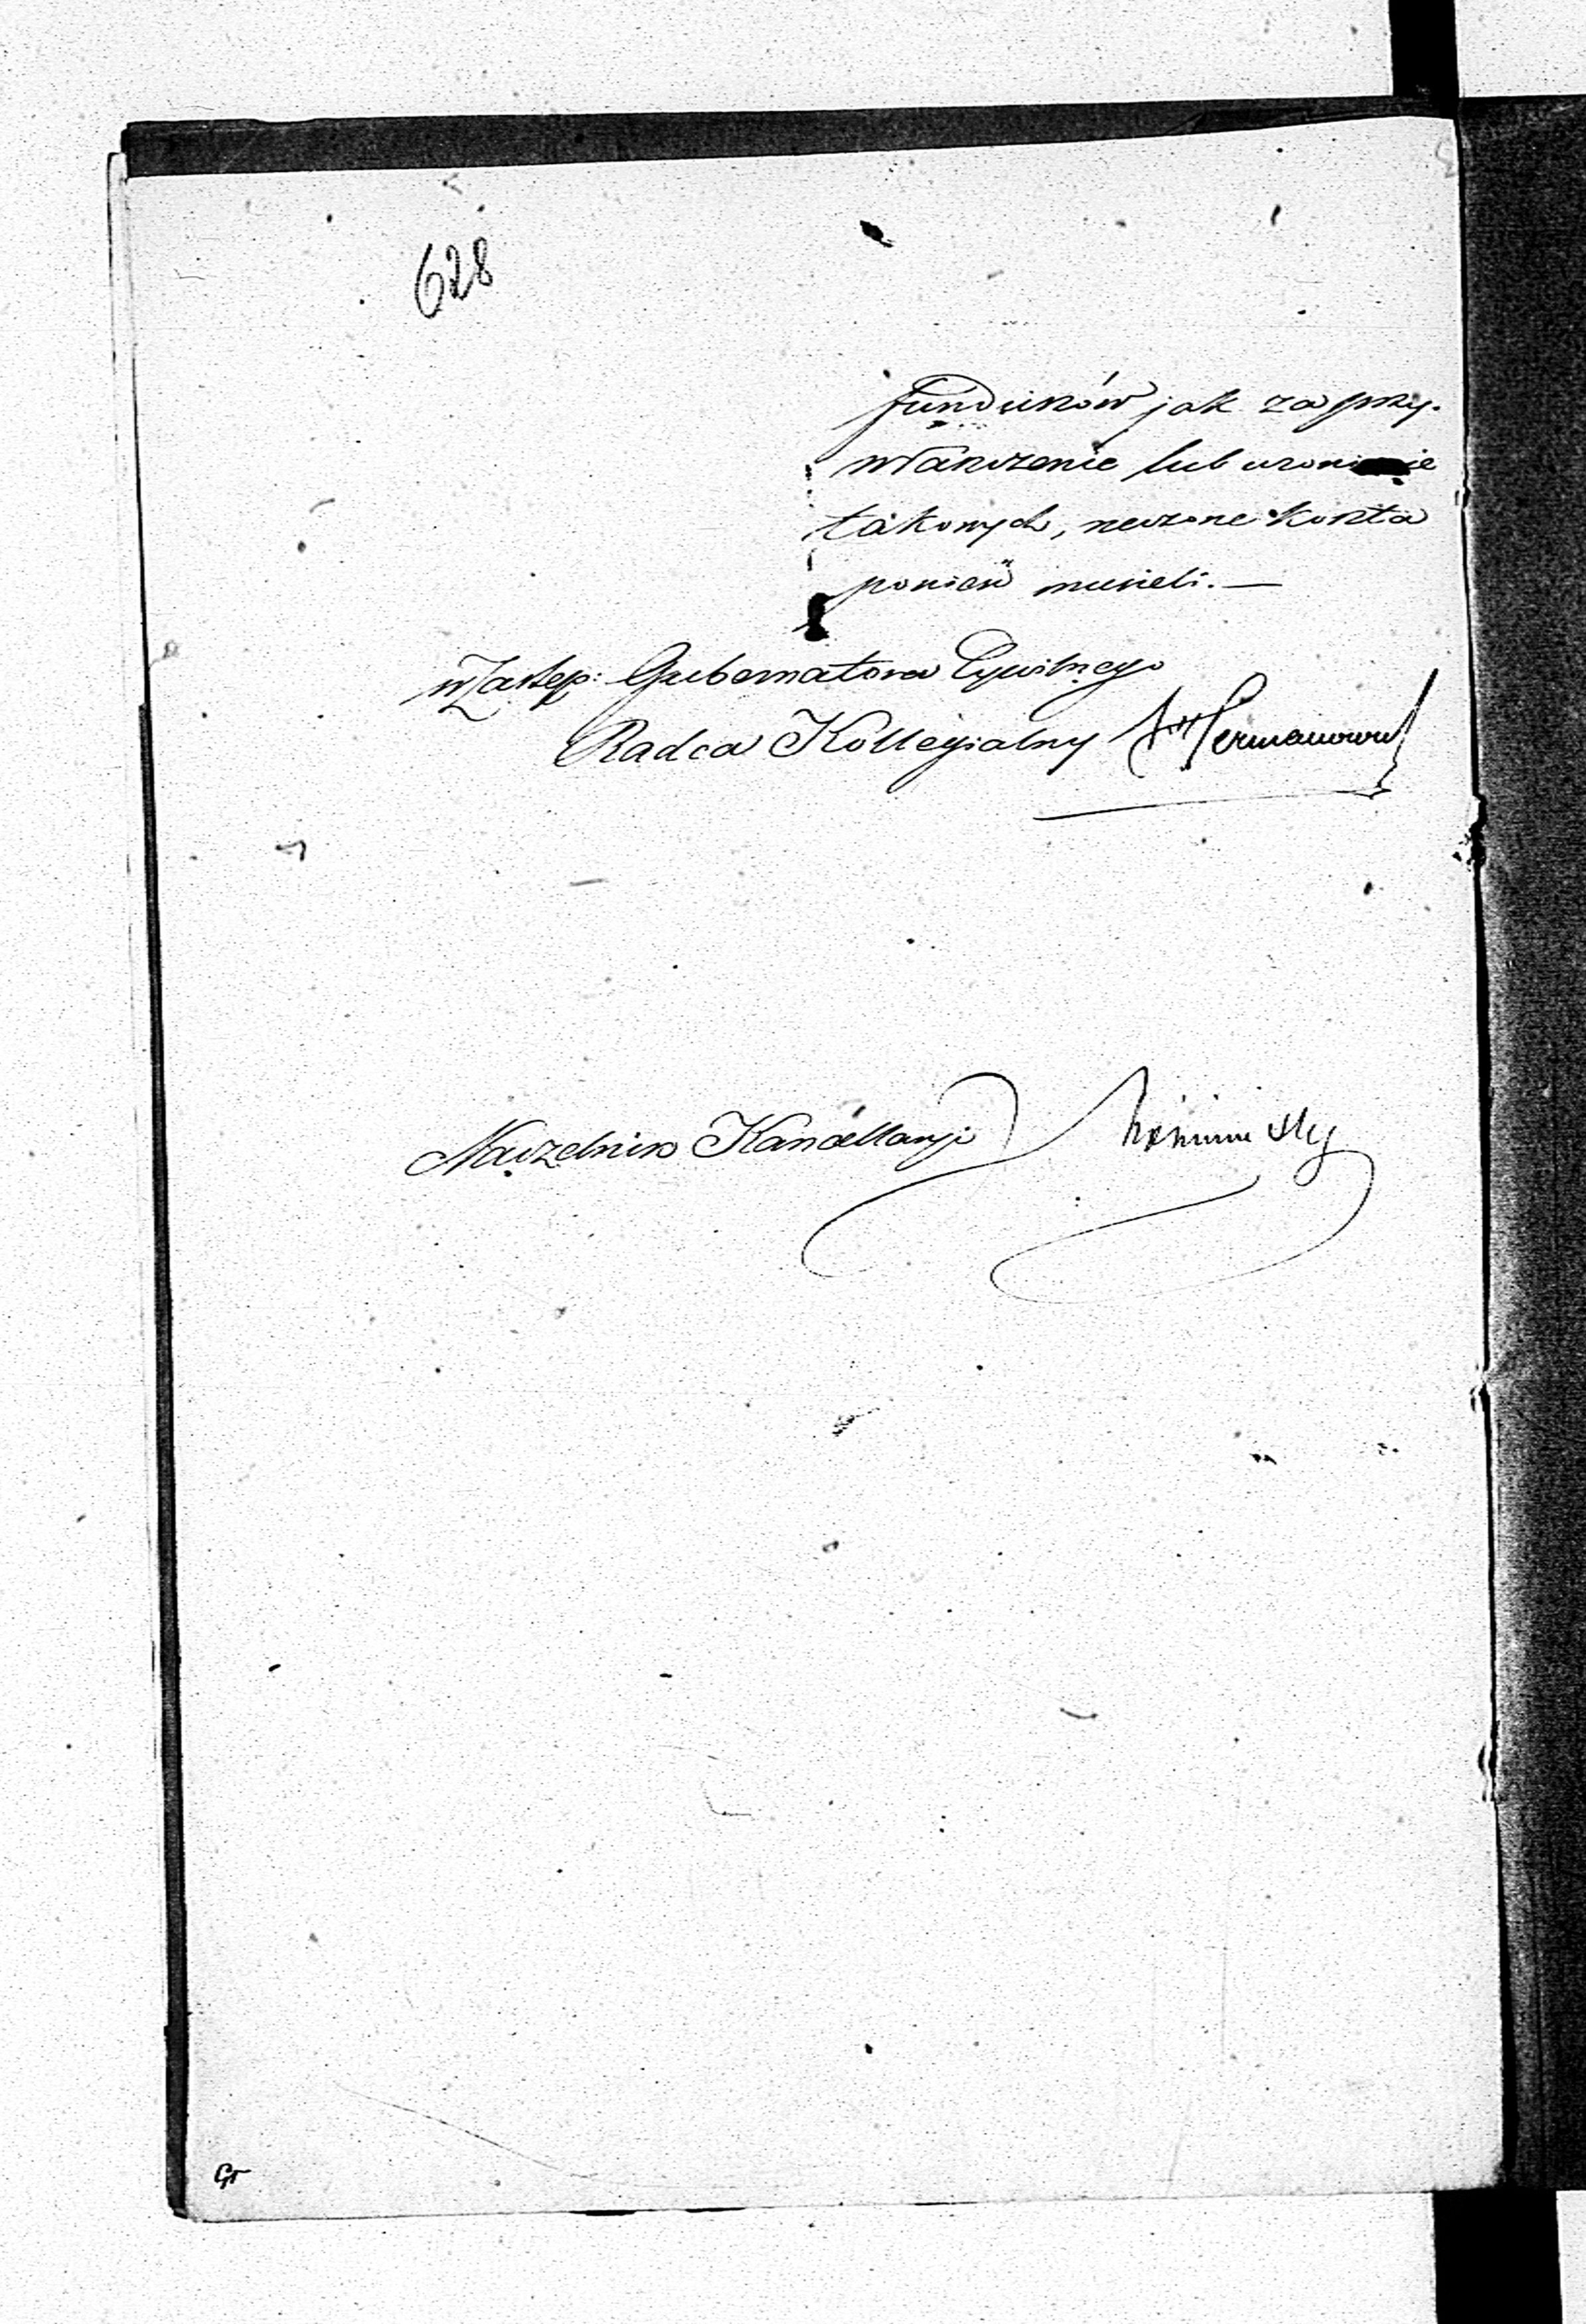 628
funduszów jak za przy-
właszczenie lub uronienie
takowych, rzeczone koszta
ponieść musieli. —
w Zastęp: Gubernatora Cywilnego
Radca Kollegialny
Naczelnik Kancellaryi
Gr